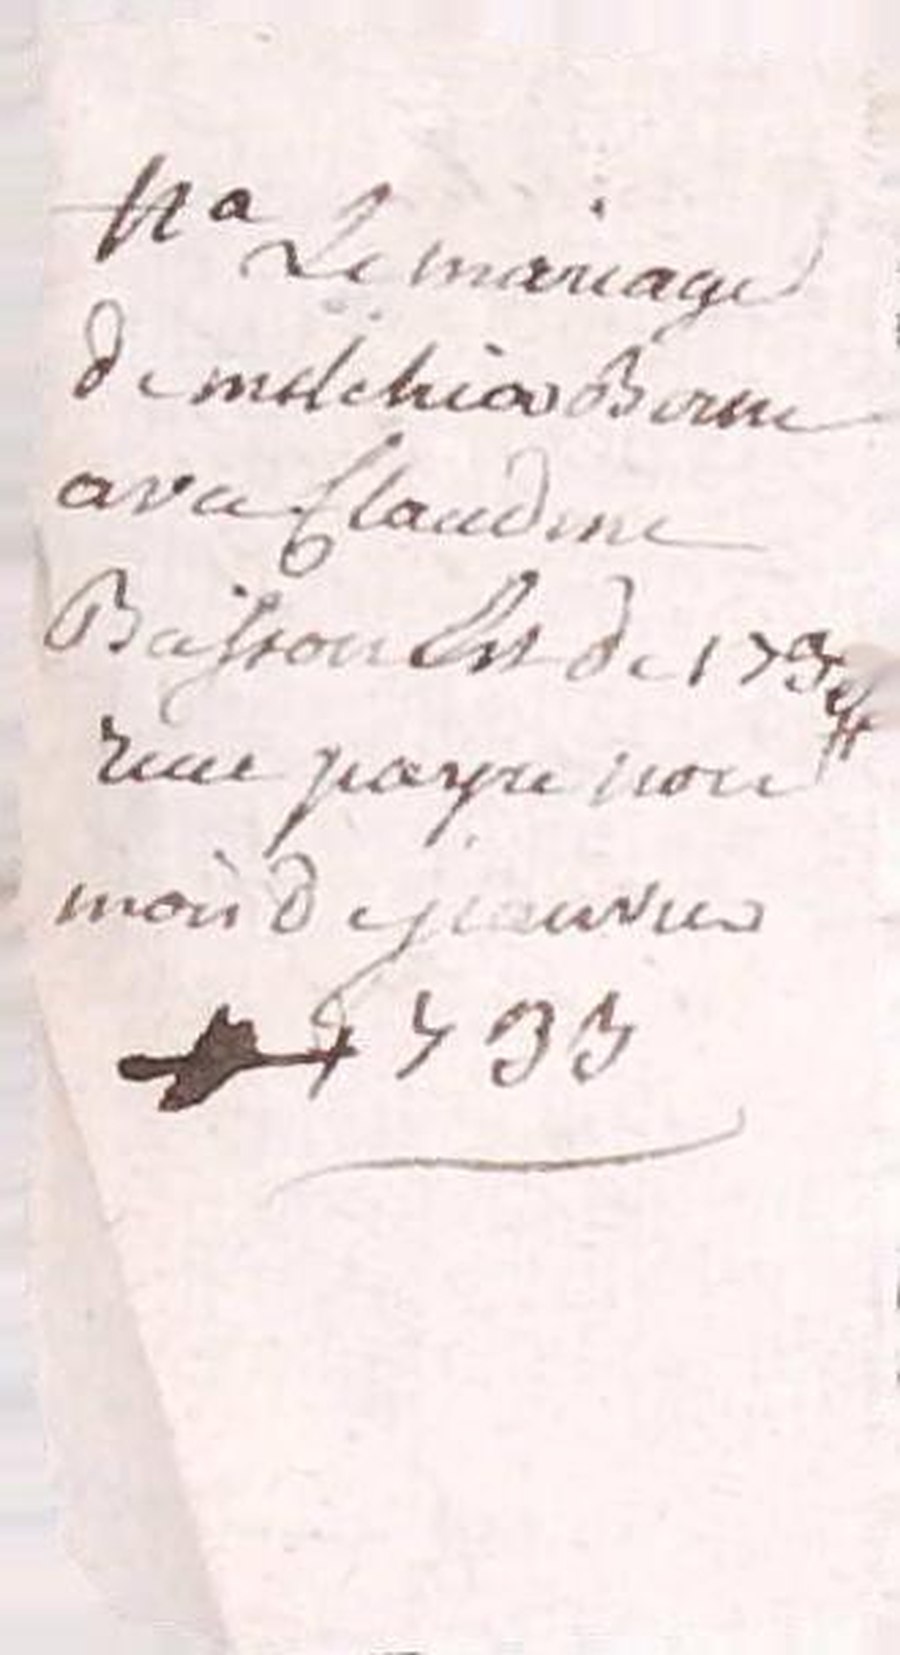 Na
Le mariage
de melchior Borne
avec Claudine
Buisson Est de 173
payre
mois de janvier
1733